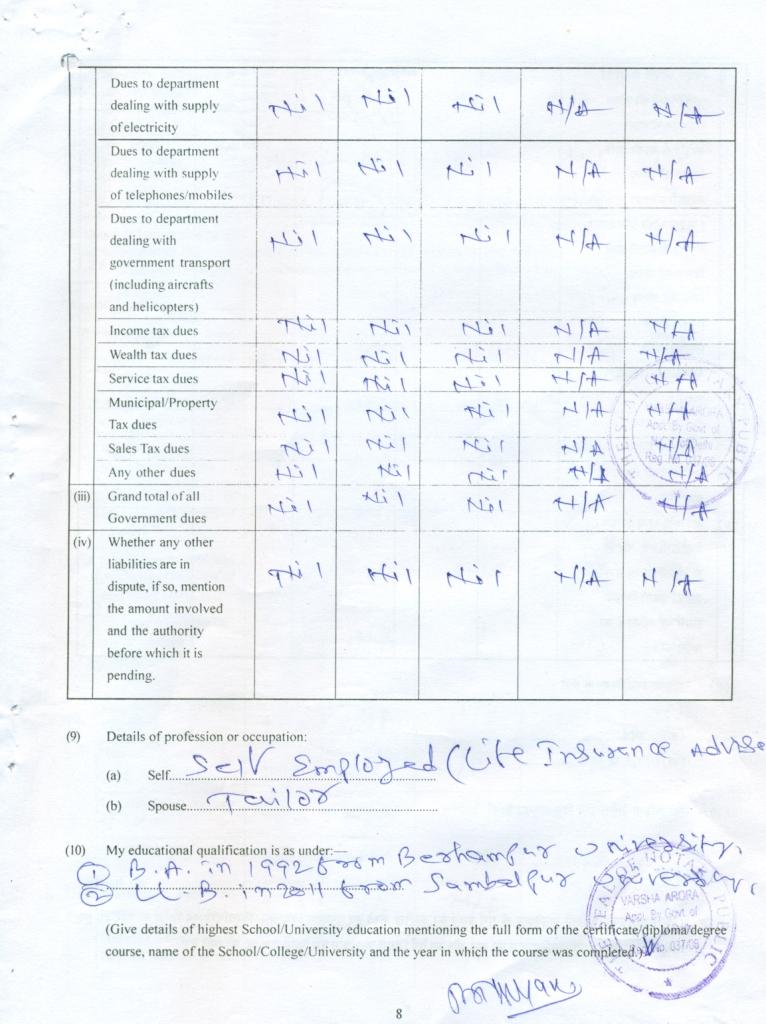 Dues to department
dealing with supply
of electricity
Nil Nil Nil N/A N/A
Dues to department
dealing with supply
of telephones/mobiles
Nil Nil Nil N/A N/A
Dues to department
dealing with
government transport
(including aircrafts
and helicopters)
Nil Nil Nil N/A N/A
Income tax dues Nil Nil Nil N/A N/A
Wealth tax dues Nil Nil Nil N/A N/A
Service tax dues Nil Nil Nil N/A N/A
Municipal/Property
Tax dues
Nil Nil Nil N/A N/A
Sales Tax dues Nil Nil Nil N/A N/A
Any other dues Nil Nil Nil N/A N/A
(iii) Grand total of all
Government dues
Nil Nil Nil N/A N/A
(iv) Whether any other
liabilities are in
dispute, if so, mention
the amount involved
and the authority
before which it is
pending.
Nil Nil Nil N/A N/A
(9) Details of profession or occupation:
(a) Self Self Employed (Life Insurance Advise
(b) Spouse Tailor
(10) My educational qualification is as under:—
① B.A. in 1992 from Berhampur University,
② LL.B. in 2011 from Sambalpur University,
(Give details of highest School/University education mentioning the full form of the certificate/diploma/degree
course, name of the School/College/University and the year in which the course was completed.)
THE SEAL OF NOTARY PUBLIC
VARSHA ARORA
Appt. By Govt. of
Reg. No. 037/06
8